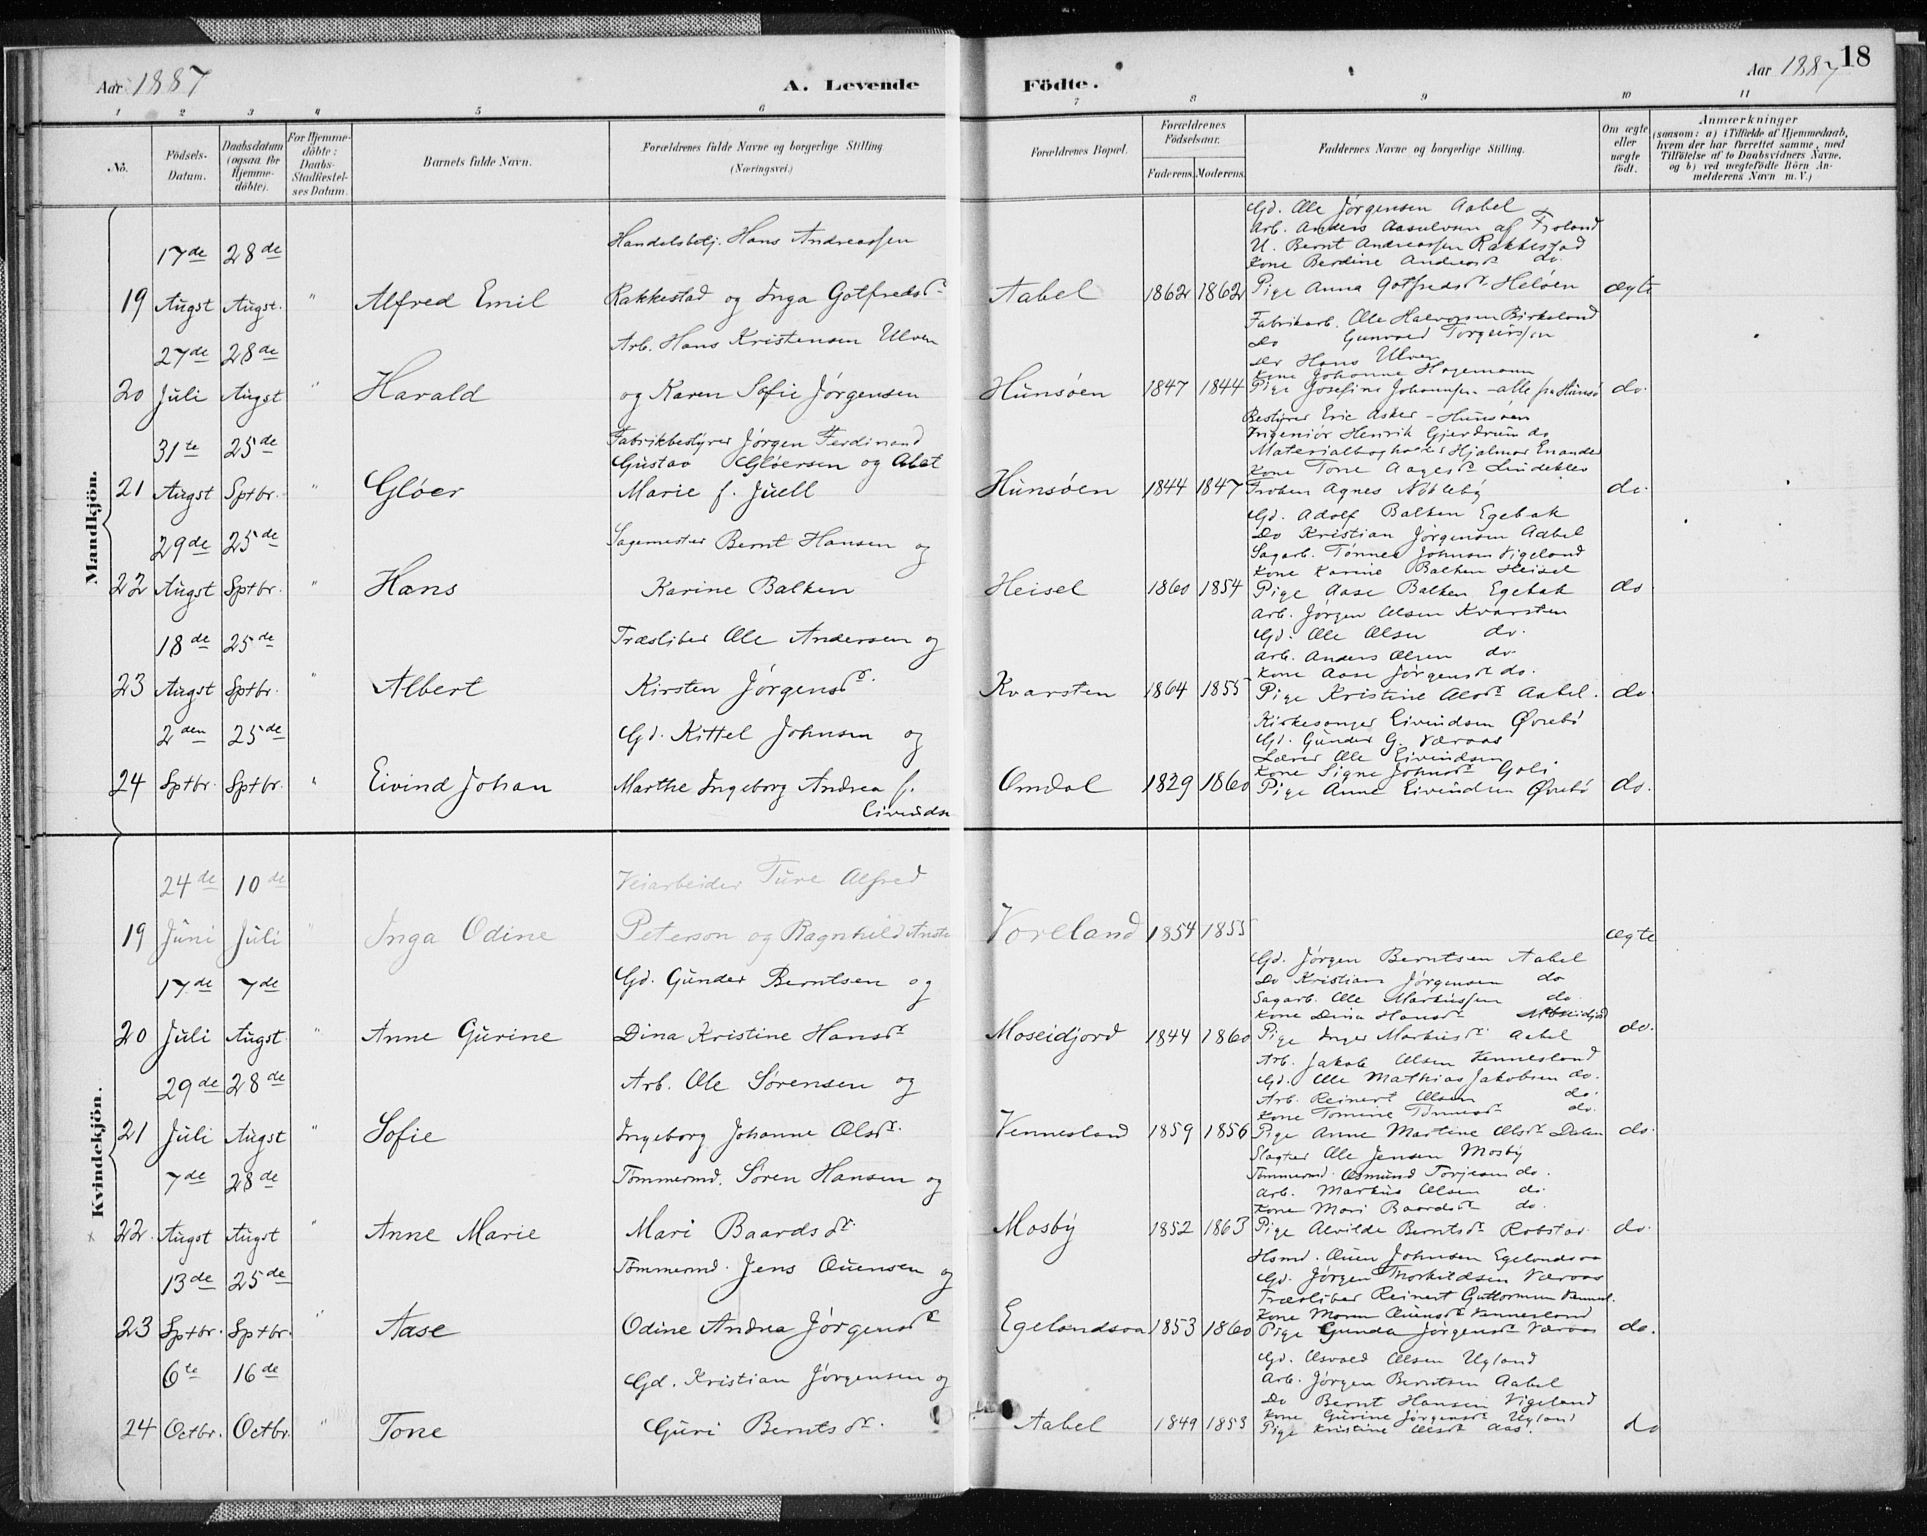 Aar 1887 A. Levende Födte. Aar 1887 18
1 2 3 4 5 6 7 8 9 10 11
No. Födsels-Datum. Daabsdatum (ogsaa for Hjemme-döbte). For Hjemme-döbte: Daabs-Stadfæstel-ses Datum. Barnets fulde Navn. Forældrenes fulde Navne og borgerlige Stilling (Næringsvei.) Forældrenes Bopæl. Forældrenes Födselsaar. Faderens. Moderens. Faddernes Navne og borgerlige Stilling. Om ægte eller uægte födt. Anmærkninger
(saasom: a) i Tilfælde af Hjemmedaab, hvem der har forrettet samme, med Tilföielse af to Daabsvidners Navne, og b) ved uægtefödte Börn An-melderens Navn m. V.)
Mandkjön.
Gd. Ole Jörgensen Aabel
Arb. Anders Aasulvsen af Froland
17de 28de Handelsbetj. Hans Andreassen U. Bernt Andreassen Rakkestad
Kone Berdine Andreasd. do.
19 Augst Augst. " Alfred Emil Rakkestad og Inga Gotfredsd. Aabel 1862 1862 Pige Anna Gotfredsd. Heløen ægte
Fabrikarb. Ole Halvorsen Birkeland
27de 28de Arb. Hans Kristensen Ulven Do Gunvald Torgeirssen
Do Hans Ulven
Kone Johanne Hagemann
20 Juli Augst " Harald og Karen Sofie Jørgensen Hunsøen 1847 1844 Pige Josefine Johannsen - alle fra Hunsø do.
Bestyrer Eric Asker - Hunsøen
31te 25de Fabrikbestyrer Jørgen Ferdinand Ingeniör Henrik Gjerdrum do
Gustav Gløersen og Abet Materialbogholder Hjalmar Enander
Kone Tone Aagesd. Lindeklev
21 Augst Sptbr. " Gløer Marie f. Juell Hunsøen 1844 1847 Frøken Agnes Nöbleby do.
Gd. Adolf Balken Egebak
29de 25de Sagemester Bernt Hansen og Do Kristian Jørgensen Aabel
Sagarb. Tønnes Johnsen Vigeland
Kone Karine Balken Heisel
22 Augst Sptbr. " Hans Karine Balken Heisel 1860 1854 Pige Aase Balken Egebak do
Arb. Jørgen Olsen Kvarsten
18de 25de Træsliber Ole Andersen og Gd. Ole Olsen do.
Arb. Anders Olsen do.
Kone Aase Jørgensd. do.
23 Augst Sptbr. " Albert Kirsten Jørgensd. Kvarsten 1864 1855 Pige Kristine Olsd. Aabel. do.
Kirkesanger Eivindsen Øvrebö
2den 25de Gd. Kittel Johnsen og Gd. Gunder G. Væraas
Lærer Ole Eivindsen
Kone Signe Johnsd. Goli.
24 Sptbr. Sptbr. " Eivind Johan Marthe Ingeborg Andrea f. Omdal 1829 1860 Pige Anne Eivindsen Øvrebö do.
Eivindsn
Kvindekjön.
24de 10de Veiarbeider Ture Alfred
19 Juni Juli " Inga Odine Peterson og Ragnhild Voreland 1854 1855 ægte
Gd. Jørgen Berntsen Aabel
17de 7de Gd. Gunder Berntsen og Do Kristian Jørgensen do
Sagarb. Ole Markussen do.
Kone Dina Hansd. Moseidjord
20 Juli Augst " Anne Gurine Dina Kristine Hansd. Moseidjord 1844 1860 Pige Inger Markusd. Aabel do.
Arb. Jakob Olsen Vennesland
29de 28de Arb. Ole Sörensen og Gd. Ole Mathias Jakobsen do.
Arb. Reinert Olsen do.
Kone Tomine Tønnesd. do.
21 Juli Augst " Sofie Ingeborg Johanne Olsd. Vennesland 1859 1856 Pige Anne Martine Olsd. Dalen do.
Slagter Ole Jensen Mosby
7de 28de Tømmermd. Søren Hansen og Tømmermd. Osmund Torjesen do.
Arb. Markus Olsen do.
Kone Mari Baardsd. do.
22. Augst Augst " Anne Marie Mari Baardsd. Mosby 1852 1863 Pige Alvilde Berntsd. Robstad do.
Hsmd. Ouen Johnsen Egelandsaa
13de 25de Tømmermd. Jens Ouensen og Gd. Jørgen Thorkildsen Væraas
Træsliber Reinert Guttormsen Vennesl.
Kone Maren Ouensd. Vennesland
23 Sptbr. Sptbr. " Aase Odine Andrea Jørgensd. Egelandsaa 1853 1860 Pige Gunda Jørgensd. Væraas do.
Gd. Osvald Olsen Ugland
6te 16de Gd. Kristian Jørgensen og Arb. Jørgen Berntsen Aabel
Do Bernt Hansen Vigeland
Kone Gurine Jørgensd. Ugland
24 Octbr. Octbr. " Tone Guri Berntsd. Aabel 1849 1853 Pige Kristine Olsd. Aas. do